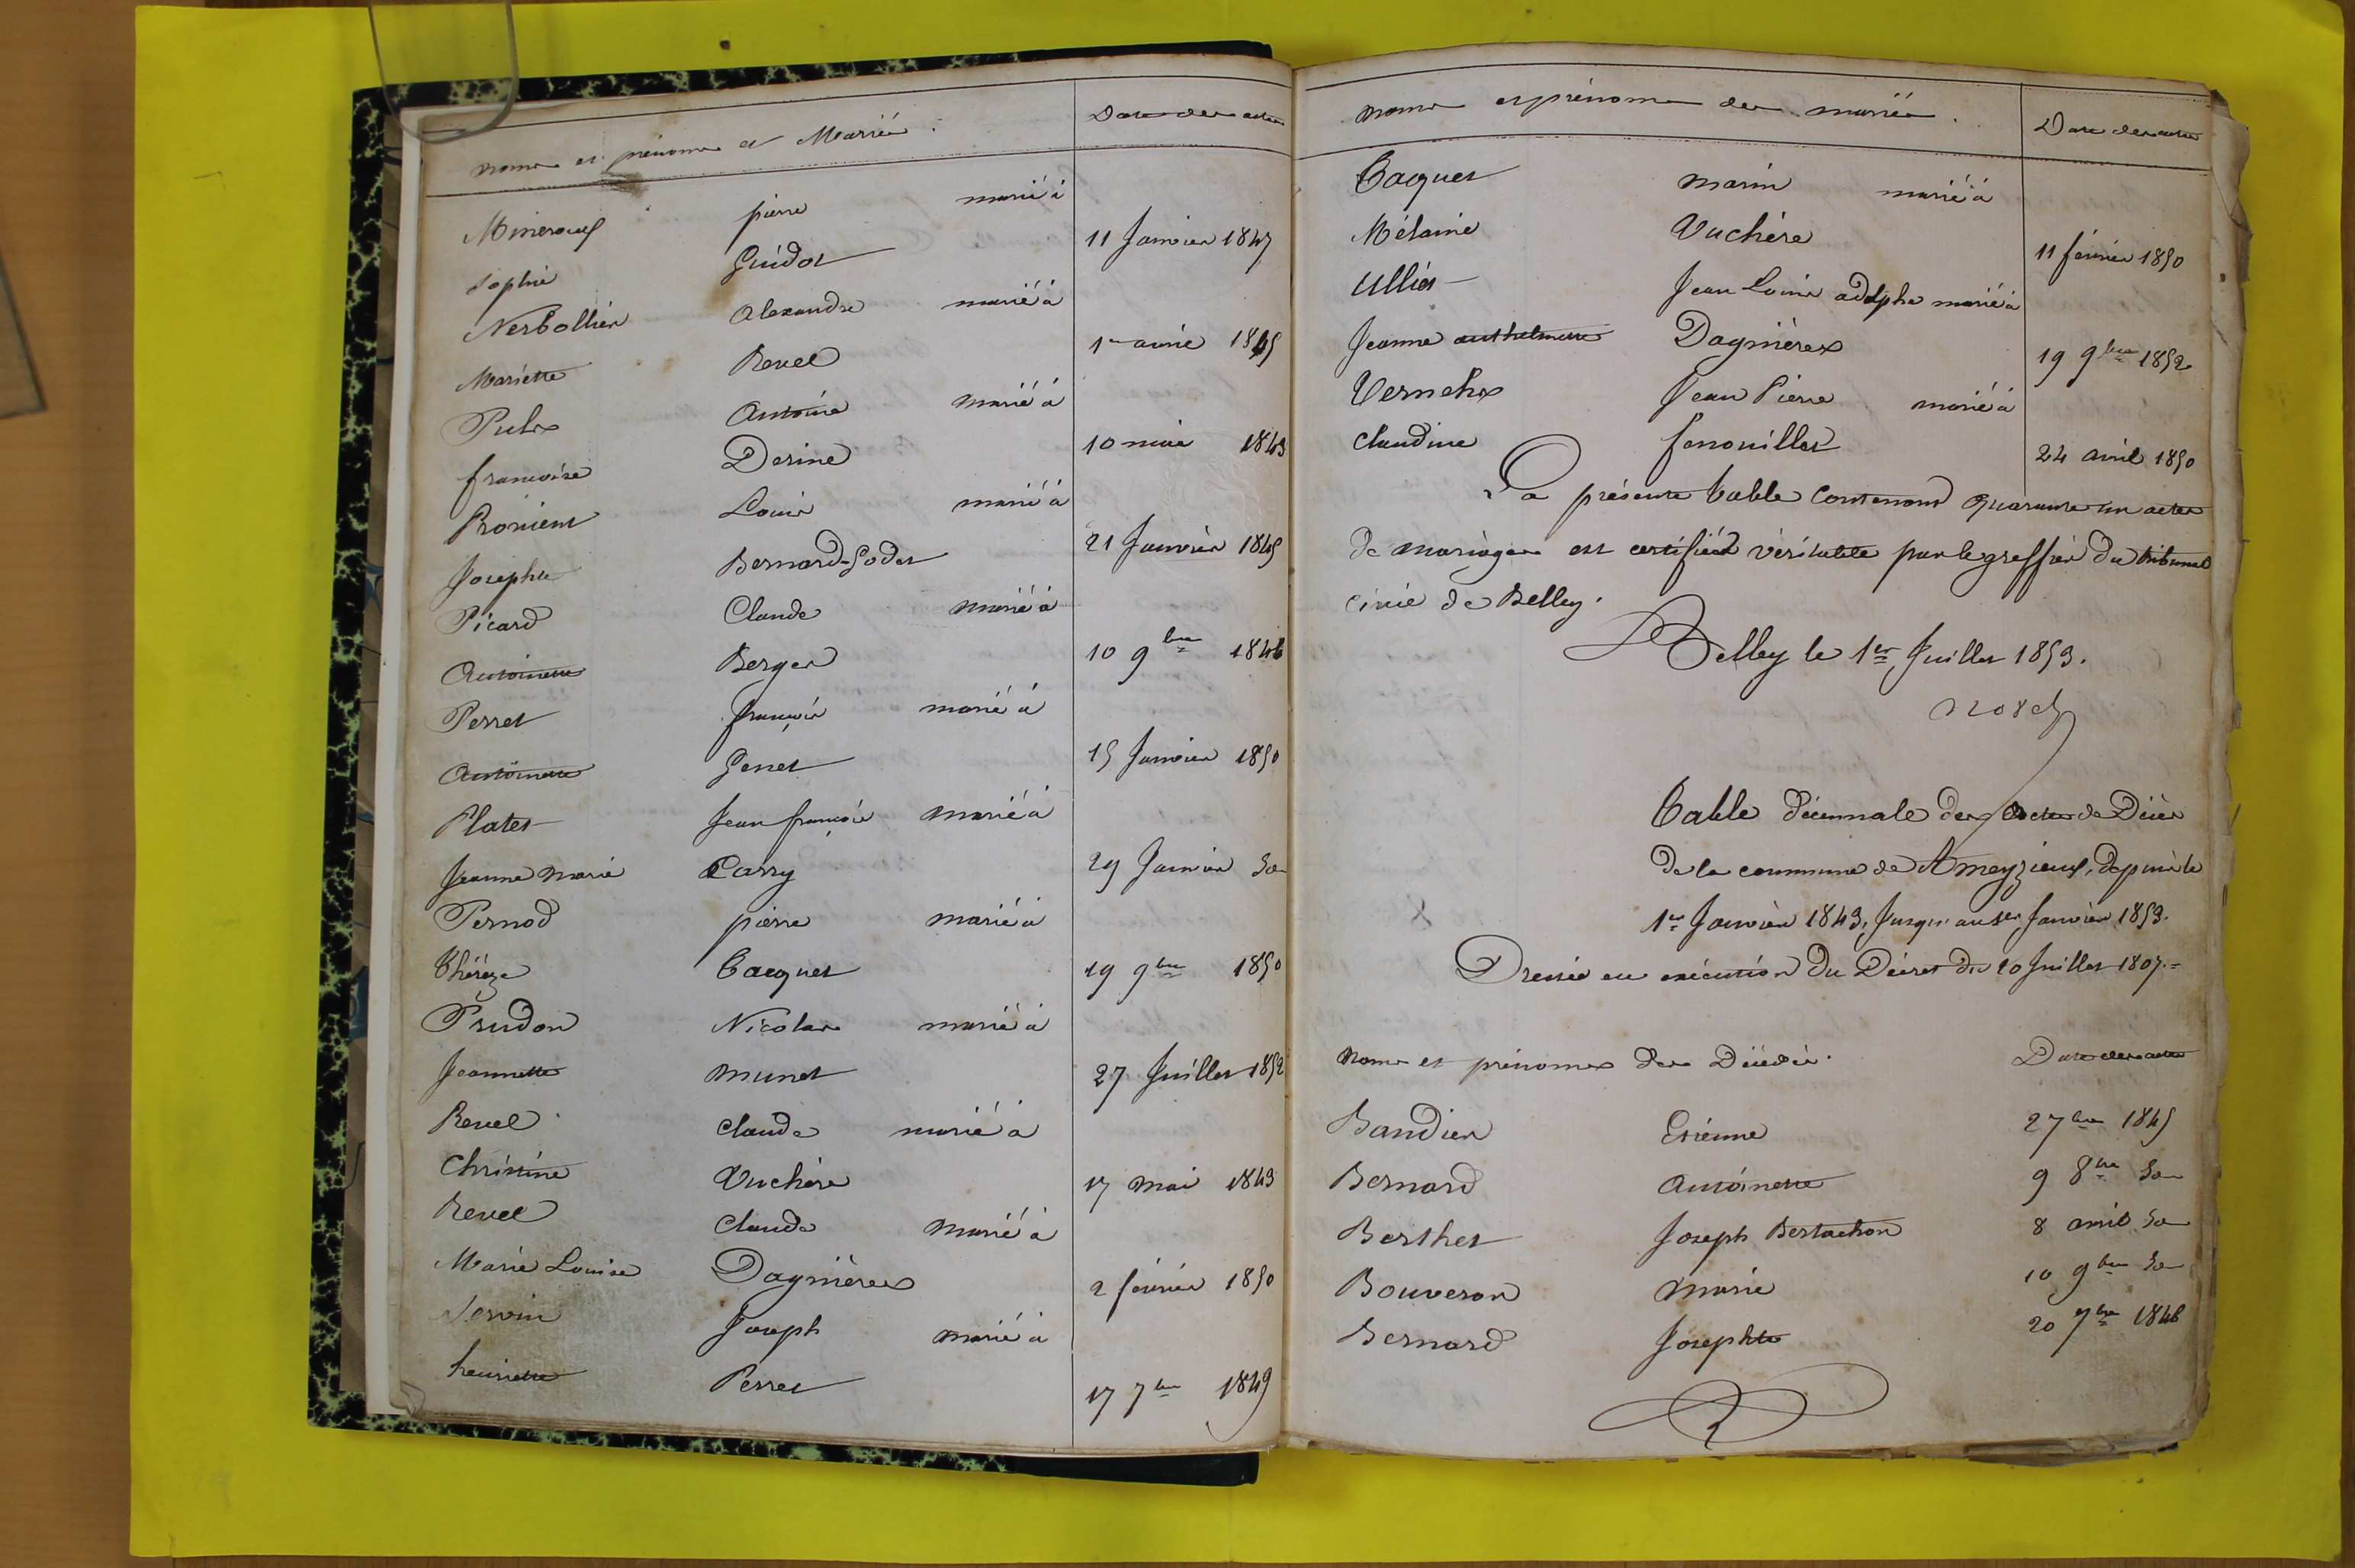 noms et prénoms et Mariés. Date des actes
Mineraux pierre marié à
Sophie Guidot 11 Janvier 1847
Nerbollier Alexandre marié à
Mariette Revel 1er avril 1845
Pulix Antoine marié à
françoise Derine 10 mai 1843
Proniens Louis marié à
Josephte Bernard-Godet 21 Janvier 1845
Picard Claude marié à
Antoinette Berger 10 9bre 1846
Perret françois marié à
Antoinette Genet 15 Janvier 1850
Platet Jean françois marié à
Jeanne Marie Carry 29 Janvier do
Pernod pierre marié à
Thérèze Tacquet 19 9bre 1850
Prudon Nicolas marié à
Jeannette Munet 27 Juillet 1852
Revel Claude marié à
Christine Vuchère 17 mai 1843
Revel Claude marié à
Marie Louise Dagnières 2 février 1850
Servin Joseph marié à
henriette Perret 17 7bre 1849
noms et prénoms des mariés. Date des actes
Tacquet Marin marié à
Mélanie Vuchère 11 février 1850
Ulliet Jean Louis adolphe marié à
Jeanne anthelmette Dagnières 19 9bre 1852
Vernehx Jean Pierre marié à
Claudine fenouillet 24 avril 1850
La présente table Contenant quarante un actes
de mariages est certifiée véritable par le greffier du tribunal
civil de Belley.
Belley le 1er Juillet 1853.
Table décennale des Actes de Décès
de la commune de Ameyzieux, depuis le
1er Janvier 1843, Jusqu'au 1er Janvier 1853.
Dressée en exécution du Décret du 20 Juillet 1807.=
Noms et prénoms des Décédés. Date des actes
Bandier Etienne 2 7bre 1845
Bernard Antoinette 9 8bre do
Berthet Joseph Bertachon 8 avril do
Bouveron Marie 10 9bre do
Bernard Josephte 20 7bre 1846